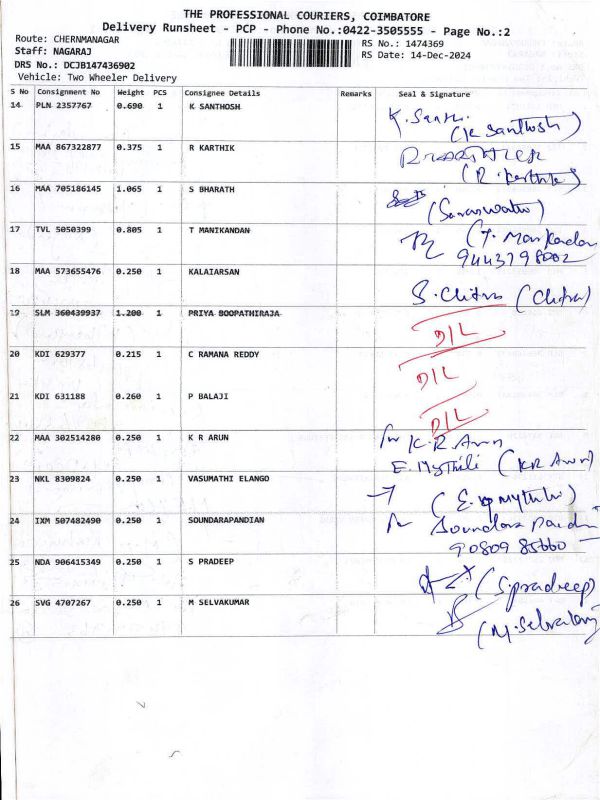 THE PROFESSIONAL COURIERS, COIMBATORE
Delivery Runsheet - PCP - Phone No.:0422-3505555 - Page No.:2
Route: CHERNMANAGAR
RS No.: 1474369
Staff: NAGARAJ
RS Date: 14-Dec-2024
DRS No.: DCJB147436902
Vehicle: Two Wheeler Delivery
S No Consignment No Weight PCS Consignee Details Remarks Seal & Signature
14 PLN 2357767 0.690 1 K SANTHOSH
K. Santh.
(K Santhosh)
15 MAA 867322877 0.375 1 R KARTHIK
(R. Karthik)
16 MAA 705186145 1.065 1 S BHARATH
(Saraswathi)
17 TVL 5050399 0.805 1 T MANIKANDAN
(T. Manikandan
9443798002
18 MAA 573655476 0.250 1 KALAIARSAN
S. Chitra (Chitra)
19 SLM 360439937 1.200 1 PRIYA BOOPATHIRAJA
D/L
20 KDI 629377 0.215 1 C RAMANA REDDY
D/L
21 KDI 631188 0.260 1 P BALAJI
D/L
22 MAA 302514280 0.250 1 K R ARUN
for K.R. Arun
E. Mythili (KR Arun)
23 NKL 8309824 0.250 1 VASUMATHI ELANGO
24 IXM 507482490 0.250 1 SOUNDARAPANDIAN
Soundara Pandi
90809 85660
25 NDA 906415349 0.250 1 S PRADEEP
(S.pradeep)
26 SVG 4707267 0.250 1 M SELVAKUMAR